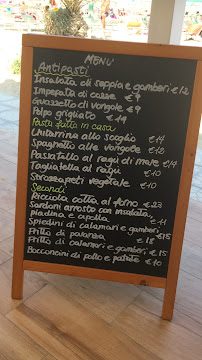 MENU
Antipasti
Insalata di seppia e gamberi €12
Impepata di cozze €9
Guazzetto di vongole €9
Polpo grigliato €14
Pasta fatta in casa
Chitarrina allo scoglio €14
Spaghetto alle vongole €
Passatello al ragù di mare €14
Tagliatella al ragù €10
Strozzapreti vegetale €10
Secondi
Ricciola cotta al forno €23
Sardoni arrosto con insalata,
piadina e cipolla €11
Spiedini di calamari e gamberi €15
Fritto di paranza €15
Fritto di calamari e gamberi €15
Bocconcini di pollo e patate €10